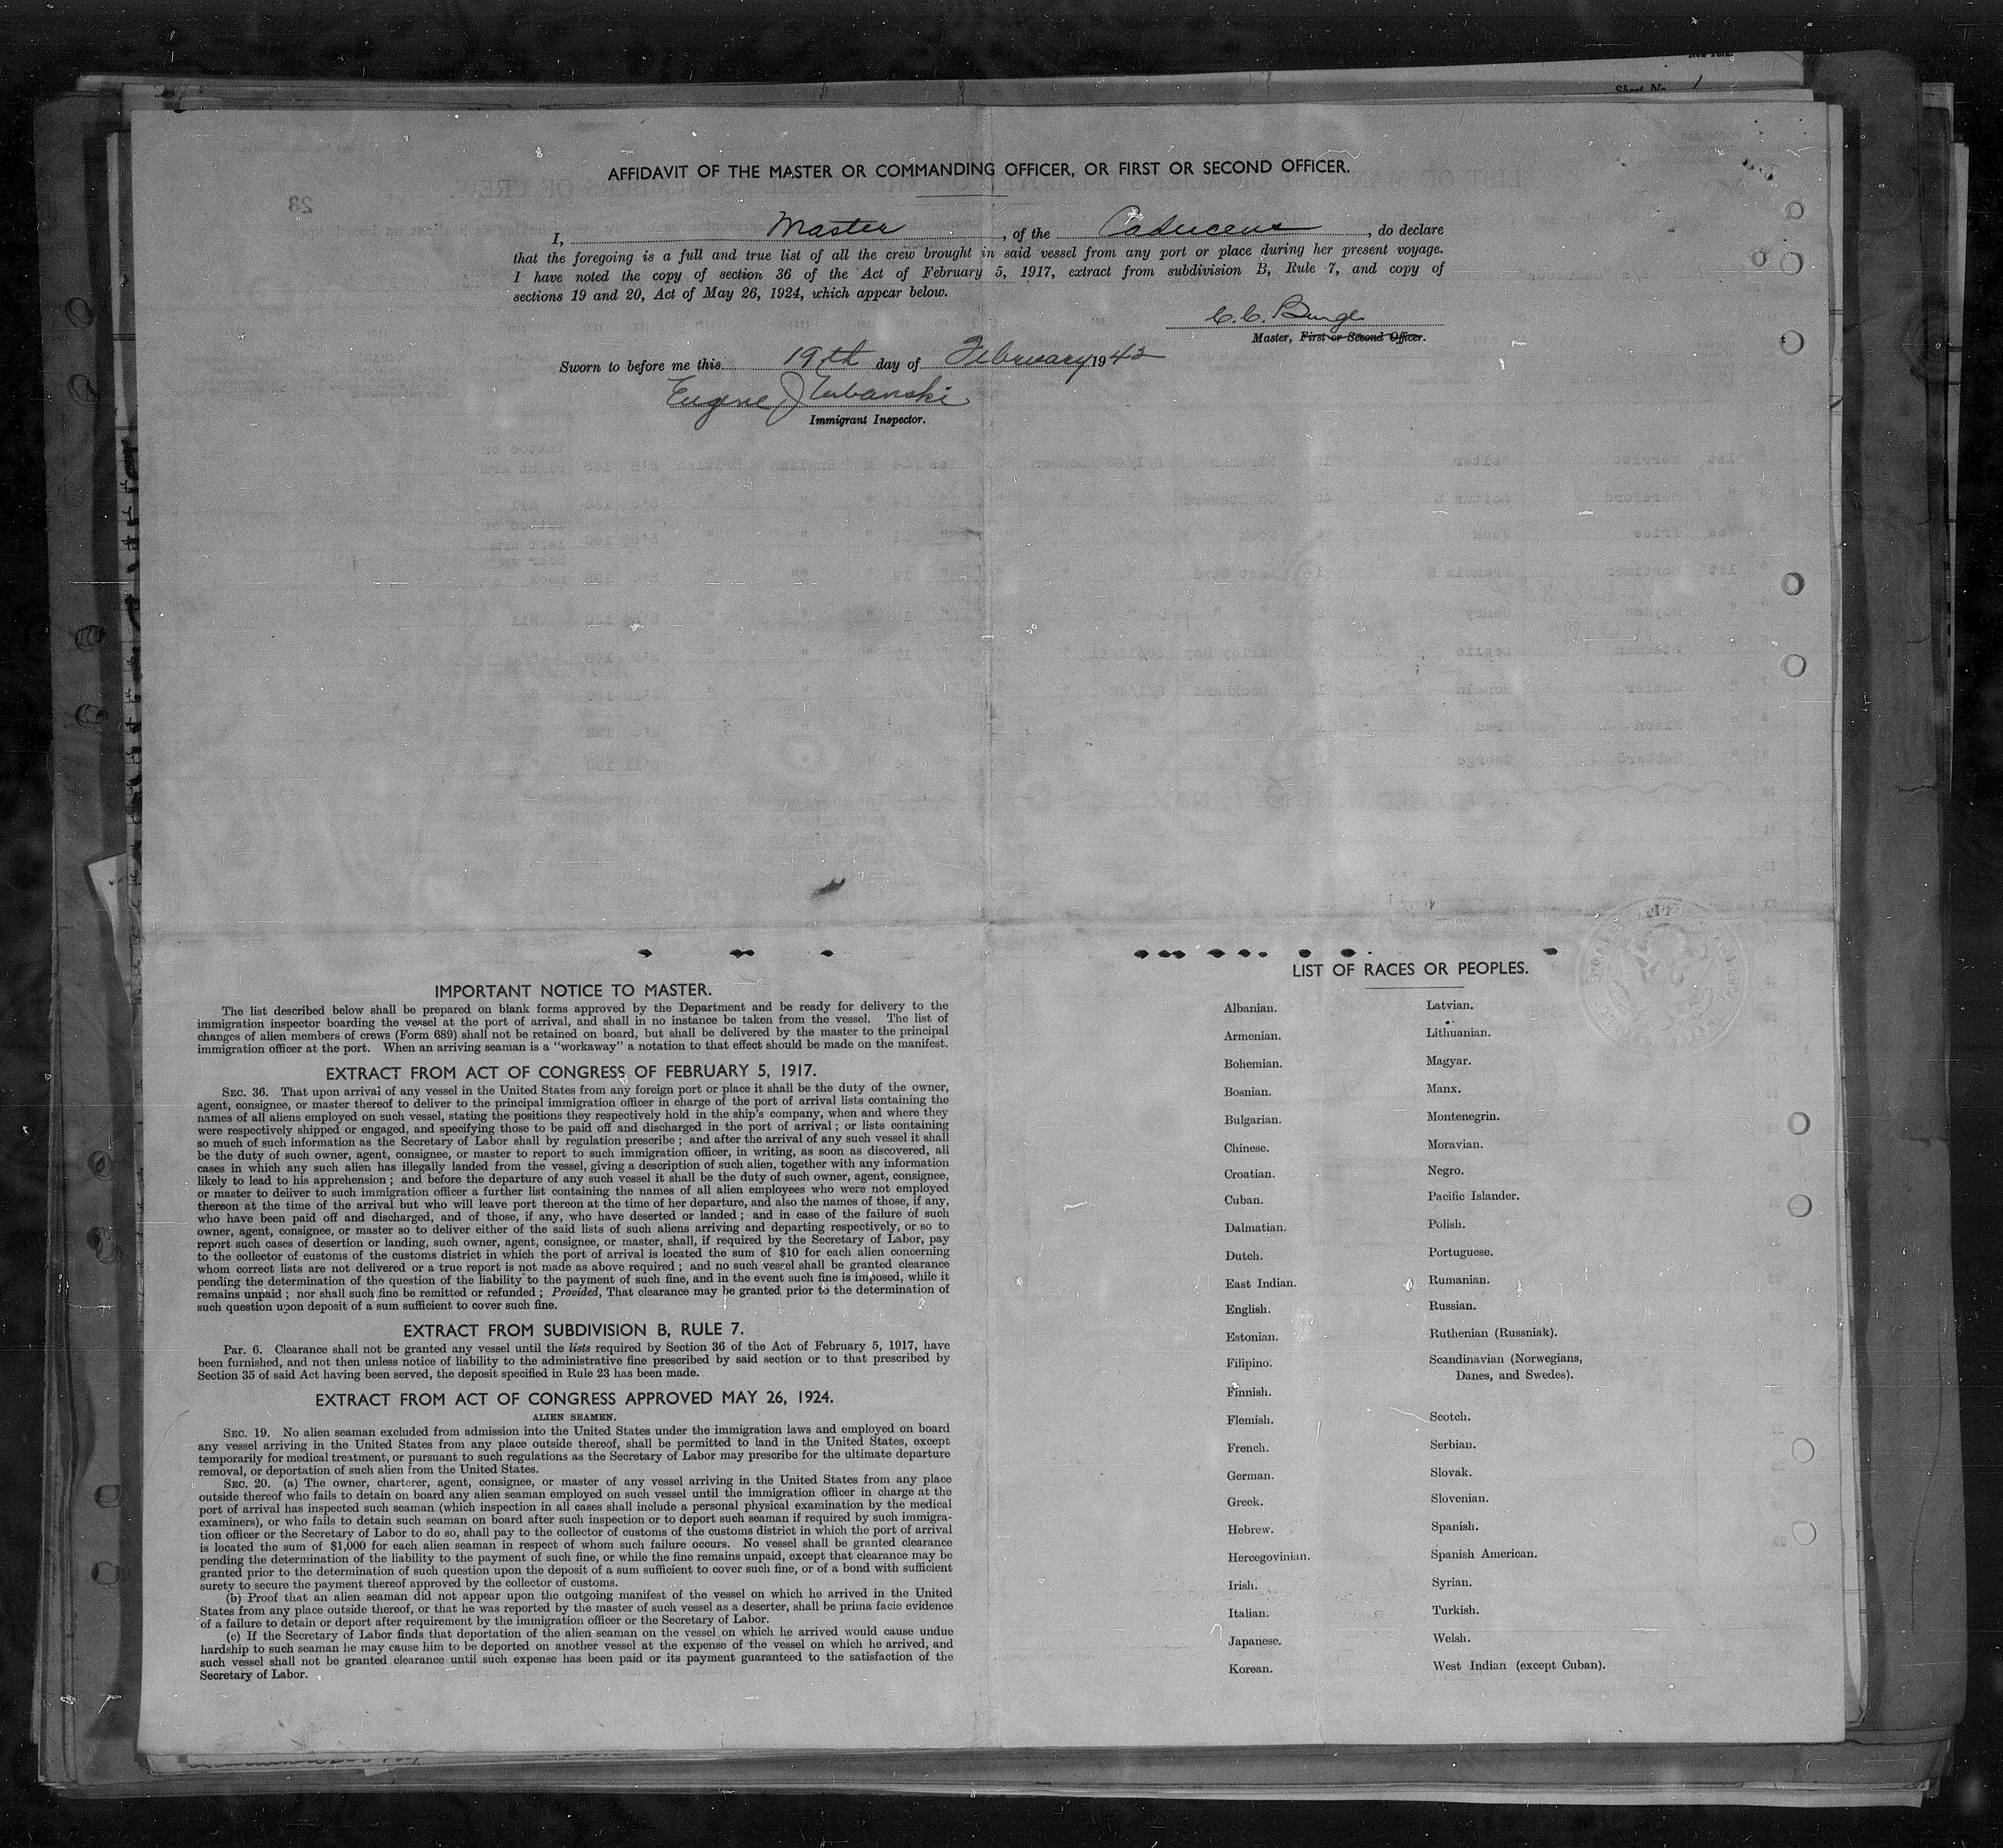 Sheet No. 1
AFFIDAVIT OF THE MASTER OR COMMANDING OFFICER, OR FIRST OR SECOND OFFICER.
I, Master, of the Caduceus, do declare
that the foregoing is a full and true list of all the crew brought in said vessel from any port or place during her present voyage.
I have noted the copy of section 36 of the Act of February 5, 1917, extract from subdivision B, Rule 7, and copy of
sections 19 and 20, Act of May 26, 1924, which appear below.
C. C.
Master, First or Second Officer.
Sworn to before me this 19th day of February 1942
Eugene J Urbanski
Immigrant Inspector.
IMPORTANT NOTICE TO MASTER.
The list described below shall be prepared on blank forms approved by the Department and be ready for delivery to the
immigration inspector boarding the vessel at the port of arrival, and shall in no instance be taken from the vessel. The list of
changes of alien members of crews (Form 689) shall not be retained on board, but shall be delivered by the master to the principal
immigration officer at the port. When an arriving seaman is a "workaway" a notation to that effect should be made on the manifest.
EXTRACT FROM ACT OF CONGRESS OF FEBRUARY 5, 1917.
SEC. 36. That upon arrival of any vessel in the United States from any foreign port or place it shall be the duty of the owner,
agent, consignee, or master thereof to deliver to the principal immigration officer in charge of the port of arrival lists containing the
names of all aliens employed on such vessel, stating the positions they respectively hold in the ship's company, when and where they
were respectively shipped or engaged, and specifying those to be paid off and discharged in the port of arrival; or lists containing
so much of such information as the Secretary of Labor shall by regulation prescribe; and after the arrival of any such vessel it shall
be the duty of such owner, agent, consignee, or master to report to such immigration officer, in writing, as soon as discovered, all
cases in which any such alien has illegally landed from the vessel, giving a description of such alien, together with any information
likely to lead to his apprehension; and before the departure of any such vessel it shall be the duty of such owner, agent, consignee,
or master to deliver to such immigration officer a further list containing the names of all alien employees who were not employed
thereon at the time of the arrival but who will leave port thereon at the time of her departure, and also the names of those, if any,
who have been paid off and discharged, and of those, if any, who have deserted or landed; and in case of the failure of such
owner, agent, consignee, or master so to deliver either of the said lists of such aliens arriving and departing respectively, or so to
report such cases of desertion or landing, such owner, agent, consignee, or master, shall, if required by the Secretary of Labor, pay
to the collector of customs of the customs district in which the port of arrival is located the sum of $10 for each alien concerning
whom correct lists are not delivered or a true report is not made as above required; and no such vessel shall be granted clearance
pending the determination of the question of the liability to the payment of such fine, and in the event such fine is imposed, while it
remains unpaid; nor shall such fine be remitted or refunded; Provided, That clearance may be granted prior to the determination of
such question upon deposit of a sum sufficient to cover such fine.
EXTRACT FROM SUBDIVISION B, RULE 7.
Par. 6. Clearance shall not be granted any vessel until the lists required by Section 36 of the Act of February 5, 1917, have
been furnished, and not then unless notice of liability to the administrative fine prescribed by said section or to that prescribed by
Section 35 of said Act having been served, the deposit specified in Rule 23 has been made.
EXTRACT FROM ACT OF CONGRESS APPROVED MAY 26, 1924.
ALIEN SEAMEN.
SEC. 19. No alien seaman excluded from admission into the United States under the immigration laws and employed on board
any vessel arriving in the United States from any place outside thereof, shall be permitted to land in the United States, except
temporarily for medical treatment, or pursuant to such regulations as the Secretary of Labor may prescribe for the ultimate departure
removal, or deportation of such alien from the United States.
SEC. 20. (a) The owner, charterer, agent, consignee, or master of any vessel arriving in the United States from any place
outside thereof who fails to detain on board any alien seaman employed on such vessel until the immigration officer in charge at the
port of arrival has inspected such seaman (which inspection in all cases shall include a personal physical examination by the medical
examiners), or who fails to detain such seaman on board after such inspection or to deport such seaman if required by such immigra-
tion officer or the Secretary of Labor to do so, shall pay to the collector of customs of the customs district in which the port of arrival
is located the sum of $1,000 for each alien seaman in respect of whom such failure occurs. No vessel shall be granted clearance
pending the determination of the liability to the payment of such fine, or while the fine remains unpaid, except that clearance may be
granted prior to the determination of such question upon the deposit of a sum sufficient to cover such fine, or of a bond with sufficient
surety to secure the payment thereof approved by the collector of customs.
(b) Proof that an alien seaman did not appear upon the outgoing manifest of the vessel on which he arrived in the United
States from any place outside thereof, or that he was reported by the master of such vessel as a deserter, shall be prima facie evidence
of a failure to detain or deport after requirement by the immigration officer or the Secretary of Labor.
(c) If the Secretary of Labor finds that deportation of the alien seaman on the vessel on which he arrived would cause undue
hardship to such seaman he may cause him to be deported on another vessel at the expense of the vessel on which he arrived, and
such vessel shall not be granted clearance until such expense has been paid or its payment guaranteed to the satisfaction of the
Secretary of Labor.
LIST OF RACES OR PEOPLES.
Albanian.
Armenian.
Bohemian.
Bosnian.
Bulgarian.
Chinese.
Croatian.
Cuban.
Dalmatian.
Dutch.
East Indian.
English.
Estonian.
Filipino.
Finnish.
Flemish.
French.
German.
Greek.
Hebrew.
Hercegovinian.
Irish.
Italian.
Japanese.
Korean.
Latvian.
Lithuanian.
Magyar.
Manx.
Montenegrin.
Moravian.
Negro.
Pacific Islander.
Polish.
Portuguese.
Rumanian.
Russian.
Ruthenian (Russniak).
Scandinavian (Norwegians,
Danes, and Swedes).
Scotch.
Serbian.
Slovak.
Slovenian.
Spanish.
Spanish American.
Syrian.
Turkish.
Welsh.
West Indian (except Cuban).